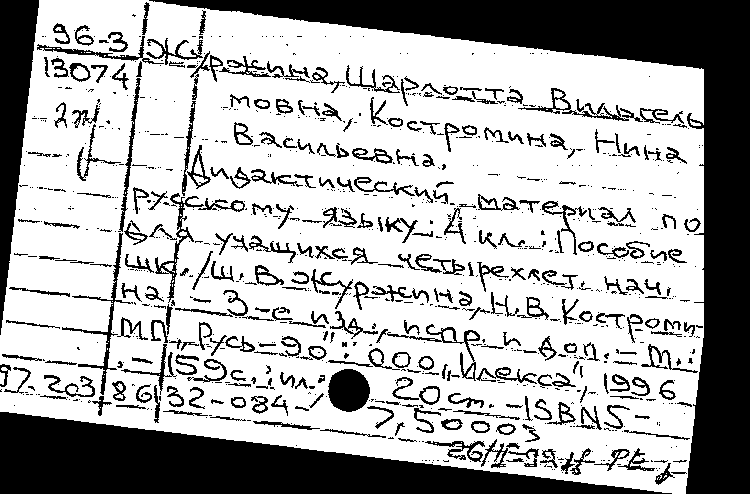 96-3 Журжина, Шарлотта Вильгель
13074 мовна, Костромина, Нина
2 эк. Васильевна.
Дидактический материал по
русскому языку: 4 кл.: Пособие
для учащихся четырехлет. нач.
шк. / Ш. В. Журжина, Н. В. Костроми-
на. - 3-е изд., испр. и доп. - М.:
МП „Русь-90": ООО „Илекса", 1996
. - 159 с.: ил.; 20 cm. - ISBN 5-
97-203 86132-084-/ 7,50000з
26/II-97